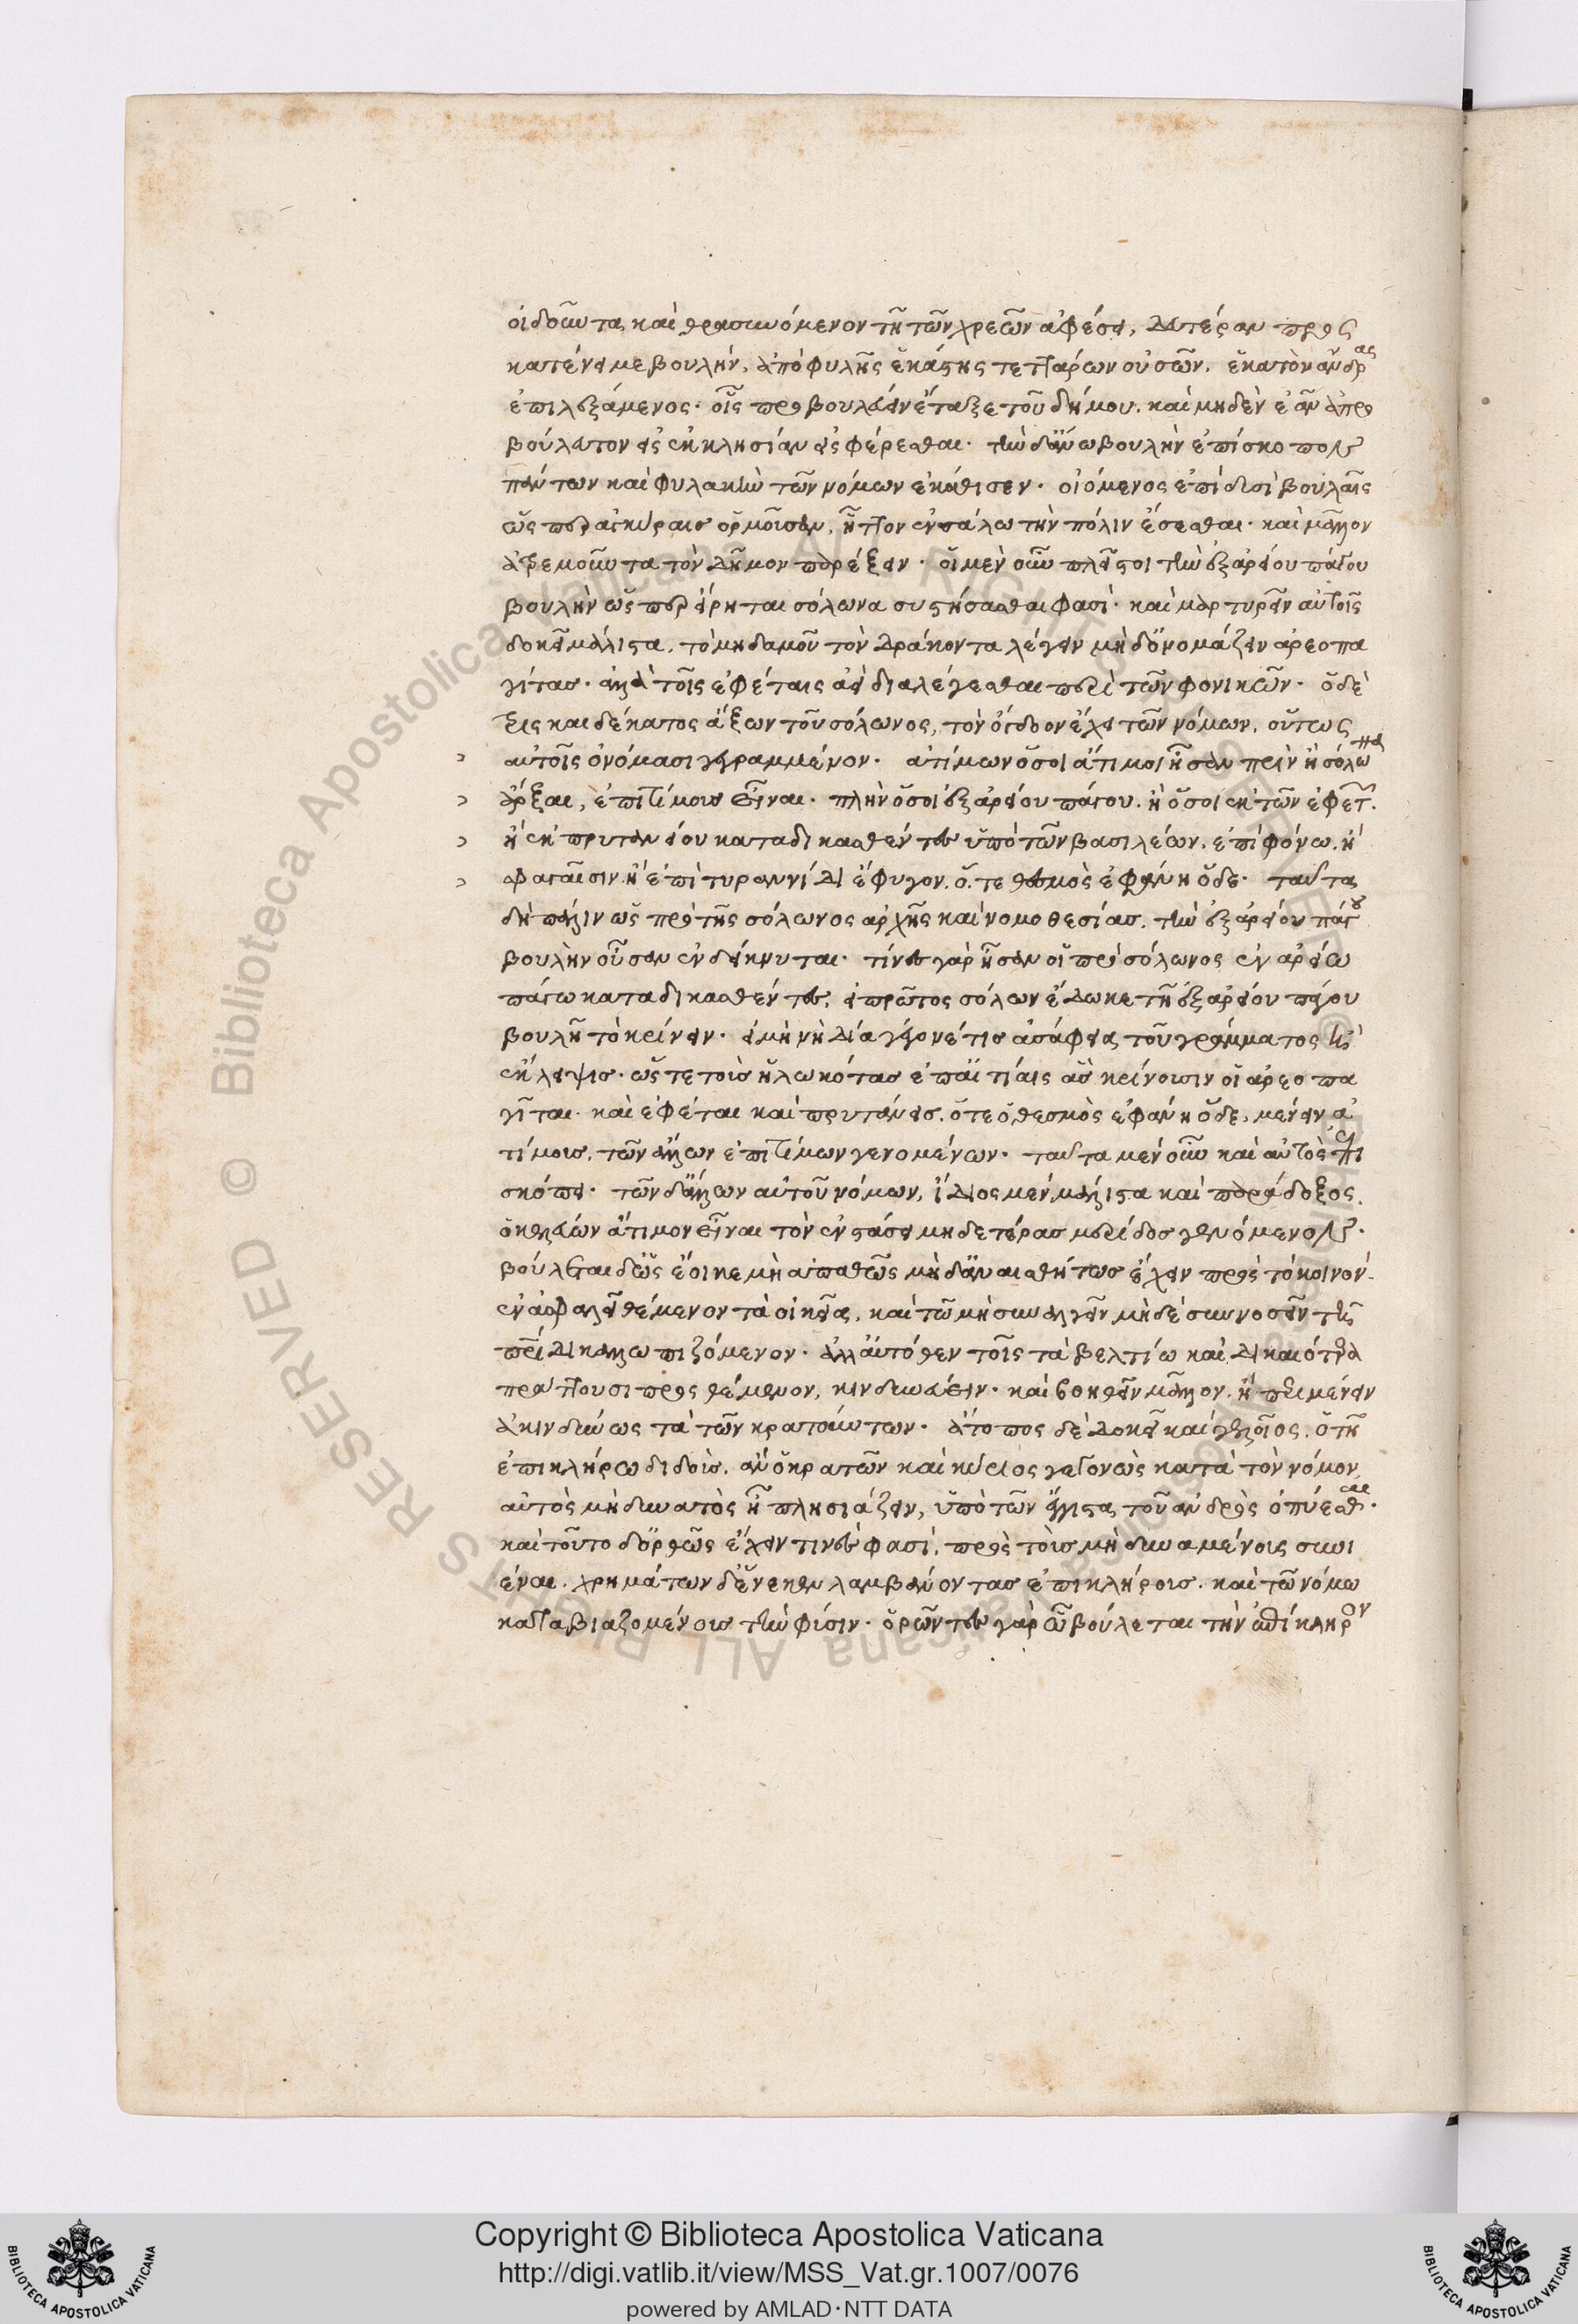 οἰδοῦντα καὶ θρασυνόμενον τῆ τῶν χρεῶν ἀφέσει, δευτέραν προς
κατένειμε βουλήν, ἀπὸ φυλῆς ἑκάστης τεττάρων οὐσῶν, ἑκατὸν ἄνδρας
ἐπιλεξάμενος· οἷς προβουλεύειν ἔταξε τοῦ δήμου. καὶ μηδὲν ἐᾶν ἀπρο
βούλευτον εἰς ἐκκλησίαν εἰσφέρεσθαι. τὴν δ' ἄνω βουλὴν ἐπίσκοπον
πάντων καὶ φυλακὴν τῶν νόμων ἐκάθισεν· οἰόμενος ἐπὶ δυσὶ βουλαῖς
ὥσπερ ἀγκύραις ὁρμοῦσαν, ἧττον ἐν σάλω τὴν πόλιν ἔσεσθαι. καὶ μᾶλλον
ἀτρεμοῦντα τὸν δῆμον παρέξειν. οἱ μὲν οὖν πλεῖστοι τὴν ἐξ ἀρείου πάγου
βουλὴν ὥσπερ εἴρηται σόλωνα συστήσασθαι φασί. καὶ μαρτυρεῖν αὐτοῖς
δοκεῖ μάλιστα, τὸ μηδαμοῦ τὸν δράκοντα λέγειν μὴ δ' ὀνομάζειν ἀρεοπα
γίτας. ἀλλὰ τοῖς ἐφέταις ἀεὶ διαλέγεσθαι περὶ τῶν φονικῶν. ὁ δὲ
τρις καιδέκατος ἄξων τοῦ σόλωνος, τὸν ὄγδοον ἔχει τῶν νόμων, οὕτως
αὐτοῖς ὀνόμασι γεγραμμένον. ἀτίμων ὅσοι ἄτιμοι ἦσαν πρὶν ἢ σόλωνα
ἄρξαι, ἐπιτίμους εἶναι. πλὴν ὅσοι ἐξ ἀρείου πάγου. ἢ ὅσοι ἐκ τῶν ἐφετῶν.
ἢ ἐκ πρυτανείου καταδικασθέντες ὑπὸ τῶν βασιλέων, ἐπὶ φόνω, ἢ
σφαγαῖσιν ἢ ἐπὶ τυραννίδι ἔφυγον, ὅτε θεσμὸς ἐφάνη ὅδε. ταῦτα
δὴ πάλιν ὡς πρὸ τῆς σόλωνος ἀρχῆς καὶ νομοθεσίας, τὴν ἐξ ἀρείου πάγου
βουλὴν οὖσαν ἐνδείκνυται. τίνες γὰρ ἦσαν οἱ πρὸ σόλωνος ἐν ἀρείω
πάγω καταδικασθέντες, εἰ πρῶτος σόλων ἔδωκε τῆ ἐξ ἀρείου πάγου
βουλῆ τὸ κρίνειν. εἰ μὴ νὴ δία γέγονέ τις ἀσάφεια τοῦ γράμματος ἢ
ἔκλειψις. ὥστε τοὺς ἡλωκότας ἐπ' αἰτίαις αἷς κρίνουσιν οἱ ἀρεοπα
γῖται. καὶ ἐφέται καὶ πρυτάνεις. ὅτε ὁ θεσμὸς ἐφάνη ὅδε, μένειν ἀ
τίμους, τῶν ἄλλων ἐπιτίμων γενομένων. ταῦτα μὲν οὖν καὶ αὐτὸς ἐπι
σκόπει. τῶν δ' ἄλλων αὐτοῦ νόμων, ἴδιος μὲν μάλιστα καὶ παράδοξος,
ὁ κελεύων ἄτιμον εἶναι τὸν ἐν στάσει μηδετέρας μερίδος γενόμενον.
βούλεται δ' ὡς ἔοικε μὴ ἀπαθῶς μὴ δ' ἀναισθήτως ἔχειν πρὸς τὸ κοινόν.
ἐν ἀσφαλεῖ θέμενον τὰ οἰκεῖα, καὶ τῶ μὴ συναλγεῖν μὴ δὲ συννοσεῖν τῆ
πατρίδι καλλωπιζόμενον. ἀλλ' αὐτόθεν τοῖς τὰ βελτίω καὶ δικαιότερα
πράττουσι προς θέμενον, κινδυνεύειν. καὶ βοηθεῖν μᾶλλον. ἢ περιμένειν
ἀκινδύνως τὰ τῶν κρατούντων. ἄτοπος δὲ δοκεῖ καὶ γελοῖος, ὁ τῆ
ἐπικλήρω διδοὺς, ἂν ὁ κρατῶν καὶ κύριος γεγονὼς κατὰ τὸν νόμον
αὐτὸς μὴ δυνατὸς ἦ πλησιάζειν, ὑπὸ τῶν ἔγγιστα τοῦ ἀνδρὸς ὀπύεσθαι.
καὶ τοῦτο δ' ὀρθῶς ἔχειν τινὲς φασί, πρὸς τοὺς μὴ δυναμένους συνι
έναι. χρημάτων δ' ἕνεκεν λαμβάνοντας ἐπικλήρους. καὶ τῶ νόμω
καταβιαζομένους τὴν φύσιν. ὁρῶντες γὰρ ὧ βούλεται τὴν ἐπίκληρον